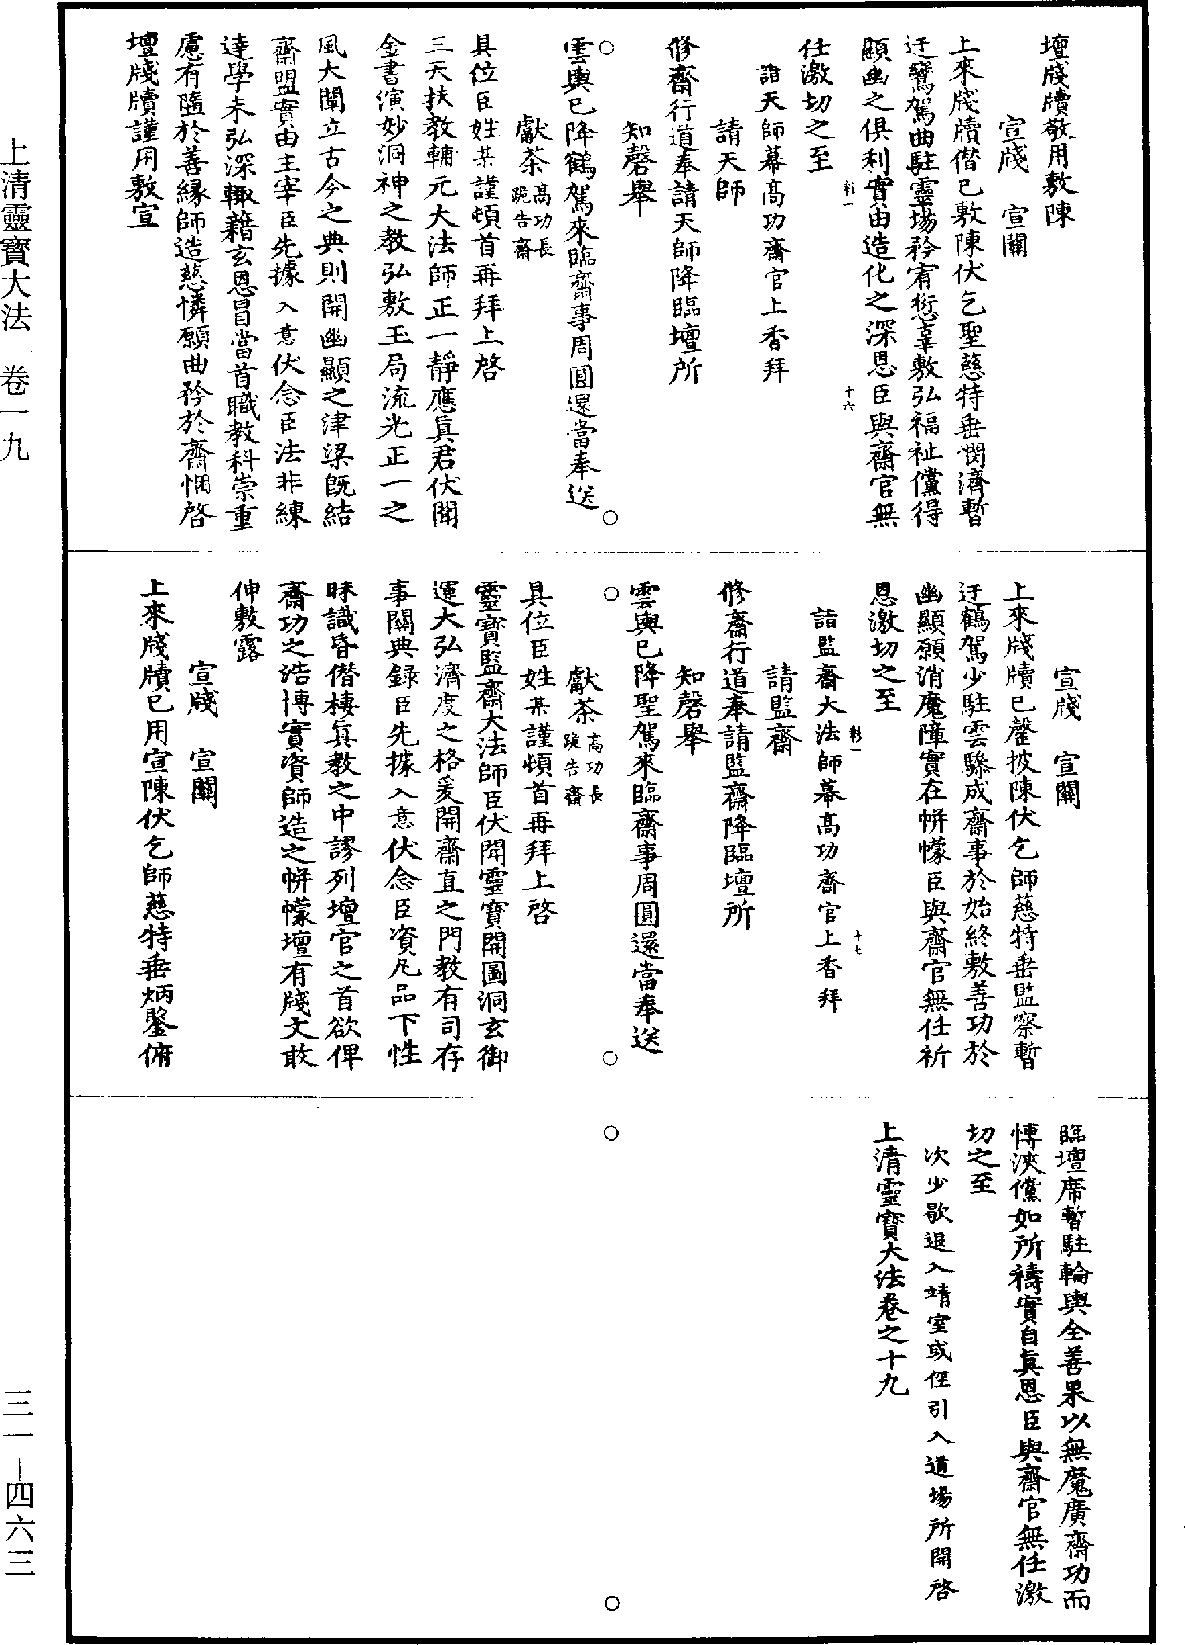 壇牋牘敬用敷陳
宣牋　宣關
上來牋牘僭已敷陳伏乞聖慈特垂閔濟暫
迂鸞駕曲駐靈場矜宥愆辜敷弘福祉儻得
顯幽之俱利實由造化之深恩臣與齋官無
十六
任激切之至
詣天師幕高功齋官上香拜
請天師
修齋行道奉請天師降臨壇所
知磬舉
雲輿已降鶴駕來臨齋事周圓還當奉送
獻茶高功長跪告齋
具位臣姓某謹頓首再拜上啓
三天扶教輔元大法師正一靜應真君伏聞
金書演妙洞神之教弘敷玉局流光正一之
風大闡立古今之典則開幽顯之津梁既結
齋盟實由主宰臣先據入意伏念臣法非練
達學未弘深輙藉玄恩冒當首職教科崇重
慮有隨於善緣師造慈憐願曲矜於齋悃啓
壇牋牘謹用敷宣
宣牋　宣關
上來牋牘已罄披陳伏乞師慈特垂監察暫
迂鶴駕少駐雲驂成齋事於始終敷善功於
幽顯願消魔障實在帡幪臣與齋官無任祈
恩激切之至
十七
詣監齋大法師幕高功齋官上香拜
請監齋
修齋行道奉請監齋降臨壇所
知磬舉
雲輿已降聖駕來臨齋事周圓還當奉送
獻茶高功長跪告齋
具位臣姓某謹頓首再拜上啓
靈寶監齋大法師臣伏聞靈寶開圖洞玄御
運大弘濟度之格爰開齋直之門教有司存
事關典錄臣先據入意伏念臣資凡品下性
昧識昏僭棲真教之中謬列壇官之首欲俾
齋功之浩博實資師造之帡幪壇有牋文敢
伸敷露
宣牋　宣關
上來牋牘已用宣陳伏乞師慈特垂炳鑒俯
臨壇席暫駐輪輿全善果以無魔廣齋功而
愽浹儻如所禱實自真恩臣與齋官無任激
切之至
次少歇退入靖室或徑引入道場所開啓
上清靈寶大法卷之十九
上清靈寶大法　卷一九
三一—四六三